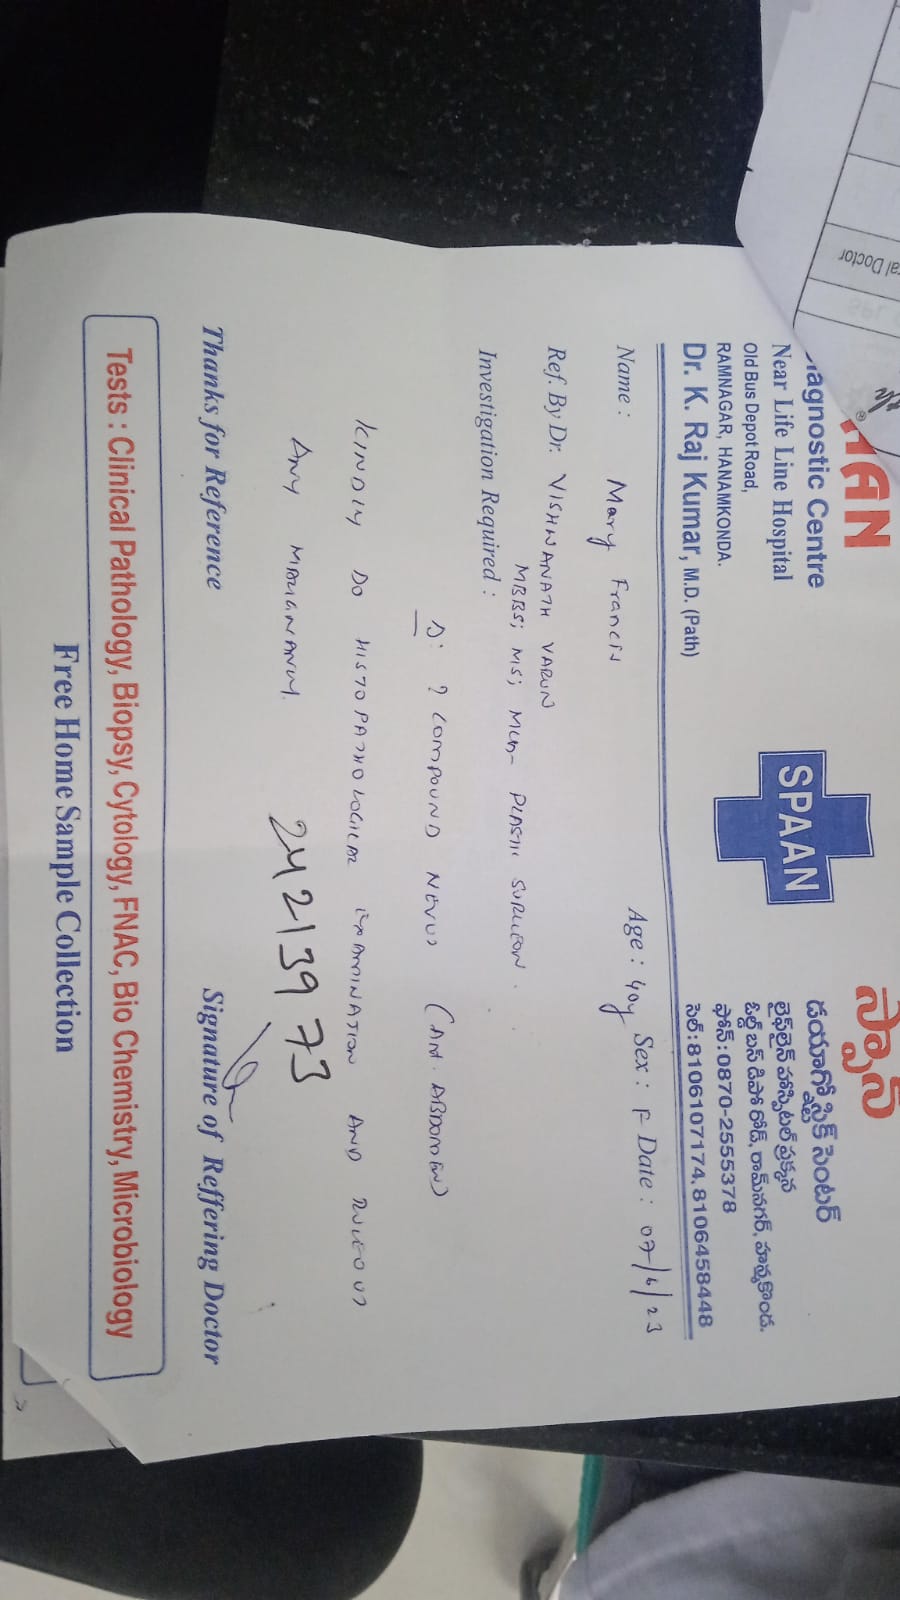 స్పాన్
SPAAN
iagnostic Centre
Near Life Line Hospital
Old Bus Depot Road,
RAMNAGAR, HANAMKONDA.
Dr. K. Raj Kumar, M.D. (Path)
డయాగ్నోస్టిక్ సెంటర్
లైఫ్‌లైన్ హాస్పిటల్ ప్రక్కన
ఓల్డ్ బస్ డిపో రోడ్, రామ్‌నగర్, హన్మకొండ.
ఫోన్ : 0870-2555378
సెల్ : 8106107174, 8106458448
Name : Mary Francis Age : 40y Sex : F Date : 07/6/23
Ref. By Dr. VISHWANATH VARUN
MBBS; MS; Mch- PLASTIC SURGEON.
Investigation Required :
D: ? COMPOUND NEVUS (AN. ABDOMEN)
KINDLY DO HISTOPATHOLOGICAL EXAMINATION AND
ANY
24213973
Thanks for Reference Signature of Reffering Doctor
Tests : Clinical Pathology, Biopsy, Cytology, FNAC, Bio Chemistry, Microbiology
Free Home Sample Collection
al Doctor